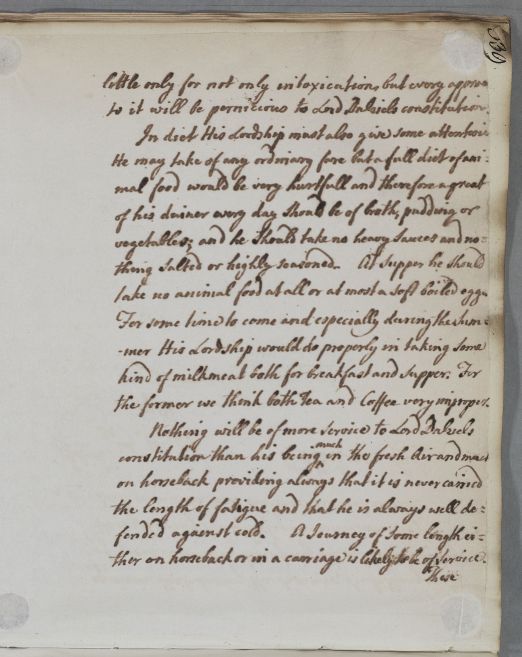 339
little only for not only intoxication, but every approa
to it will be pernicious to Lord Dalziels constitution.
In diet His Lordship must also give some attention
He may take of any ordinary fare but a full diet of ani=
mal food would be very hurtfull and therefore a great
of his dinner every day should be of broth, pudding or
vegetables; and he should take no heavy sauces and no=
thing salted or highly seasoned. At supper he should
take no animal food at all or at most a soft boiled egg.
For some time to come and especially during the Sum=
-mer His Lordship would do properly in taking some
kind of milkmeat both for breakfast and supper. For
the former we think both Tea and Coffee very improper.
Nothing will be of more service to Lord Dalziels
constitution than his being much in the fresh Air and much
on horseback providing always that it is never carried
the length of fatigue and that he is always well de=
fended against cold. A Journey of some length ei=
ther on horseback or in a carriage is likely to be of service.
These